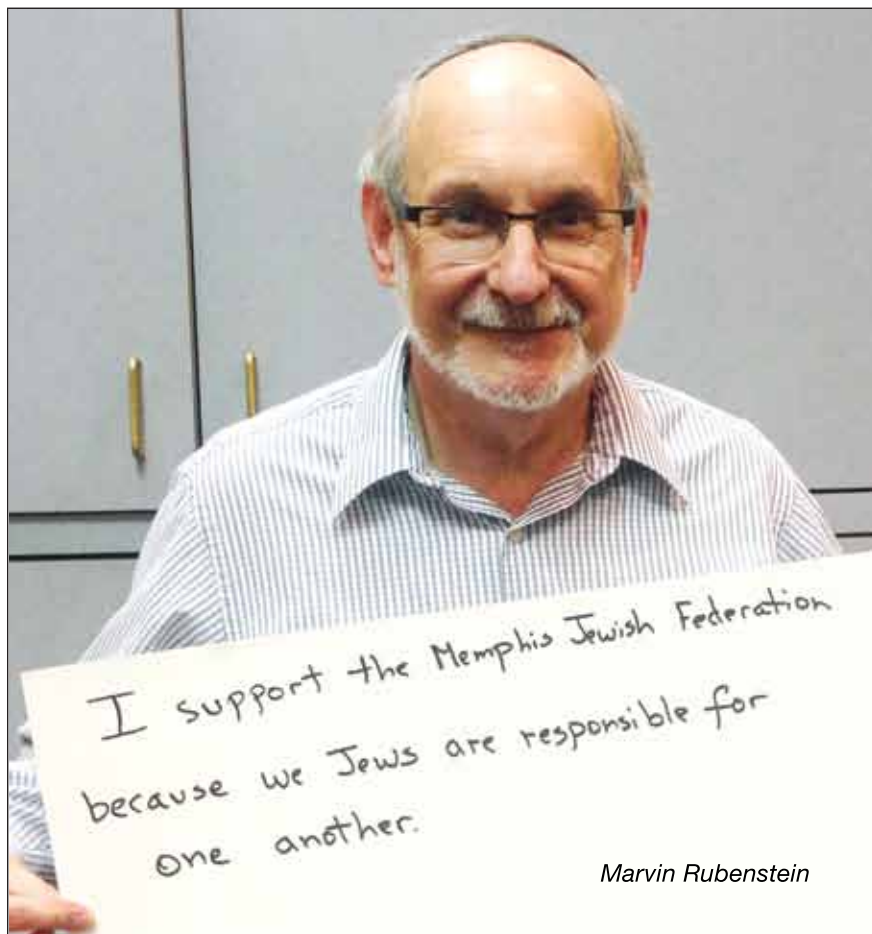 I support the Memphis Jewish Federation
because we Jews are responsible for
one another.
Marvin Rubenstein